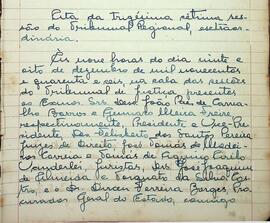 Ata da trigésima setima ses-
são do Tribunal Regional, extraor-
dinária.
Às nove horas do dia vinte e
oito de dezembro de mil novecentos
e quarenta e seis, na sala das sessões
do Tribunal de Justiça, presentes
os Exmos. Srs. Des. João Paes de Carva-
lho Barros e Genaro Freire,
respectivamente, Presidente e Vice-Pre-
sidente, Drs. Felisberto dos Santos Pereira
Juizes de Direito, José Tomás de Medei-
ros Correia e Tomás de Aquino Cirilo
Wanderlei, juristas, Drs. José Joaquim
de Almeida e Torquato da Silva Cas-
tro, e o Sr. Dirceu Ferreira Borges Pro-
curador Geral do Estado, comigo